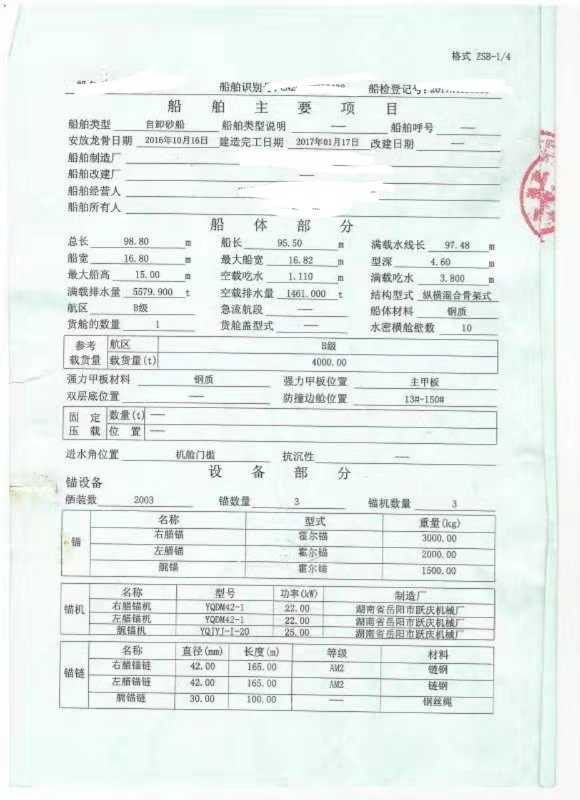 格式 ZSB-1/4
船舶识别 船检登记
船 舶 主 要 项 目
船舶类型 自卸砂船 船舶类型说明 —— 船舶呼号 ——
安放龙骨日期 2016年10月16日 建造完工日期 2017年01月17日 改建日期 ——
船舶制造厂
船舶改建厂
船舶经营人
船舶所有人
船 体 部 分
总长 98.80 m 船长 95.50 m 满载水线长 97.48 m
船宽 16.80 m 最大船宽 16.82 m 型深 4.60 m
最大船高 15.00 m 空载吃水 1.110 m 满载吃水 3.800 m
满载排水量 5579.900 t 空载排水量 1461.000 t 结构型式 纵横混合骨架式
航区 B级 急流航段 —— 船体材料 钢质
货舱的数量 1 货舱盖型式 —— 水密横舱壁数 10
参考 航区 B级
载货量 载货量(t) 4000.00
强力甲板材料 钢质 强力甲板位置 主甲板
双层底位置 —— 防撞边舱位置 13#-150#
固 定 数量(t) ——
压 载 位 置 ——
进水角位置 机舱门槛 抗沉性 ——
设 备 部 分
锚设备
舾装数 2003 锚数量 3 锚机数量 3
名称 型式 重量(kg)
锚 右艏锚 霍尔锚 3000.00
左艏锚 霍尔锚 2000.00
艉锚 霍尔锚 1500.00
名称 型号 功率(kW) 制造厂
锚机 右艏锚机 YQDM42-1 22.00 湖南省岳阳市跃庆机械厂
左艏锚机 YQDM42-1 22.00 湖南省岳阳市跃庆机械厂
艉锚机 YQJYJ-I-20 25.00 湖南省岳阳市跃庆机械厂
名称 直径(mm) 长度(m) 等级 材料
锚链 右艏锚链 42.00 165.00 AM2 链钢
左艏锚链 42.00 165.00 AM2 链钢
艉锚链 30.00 100.00 —— 钢丝绳